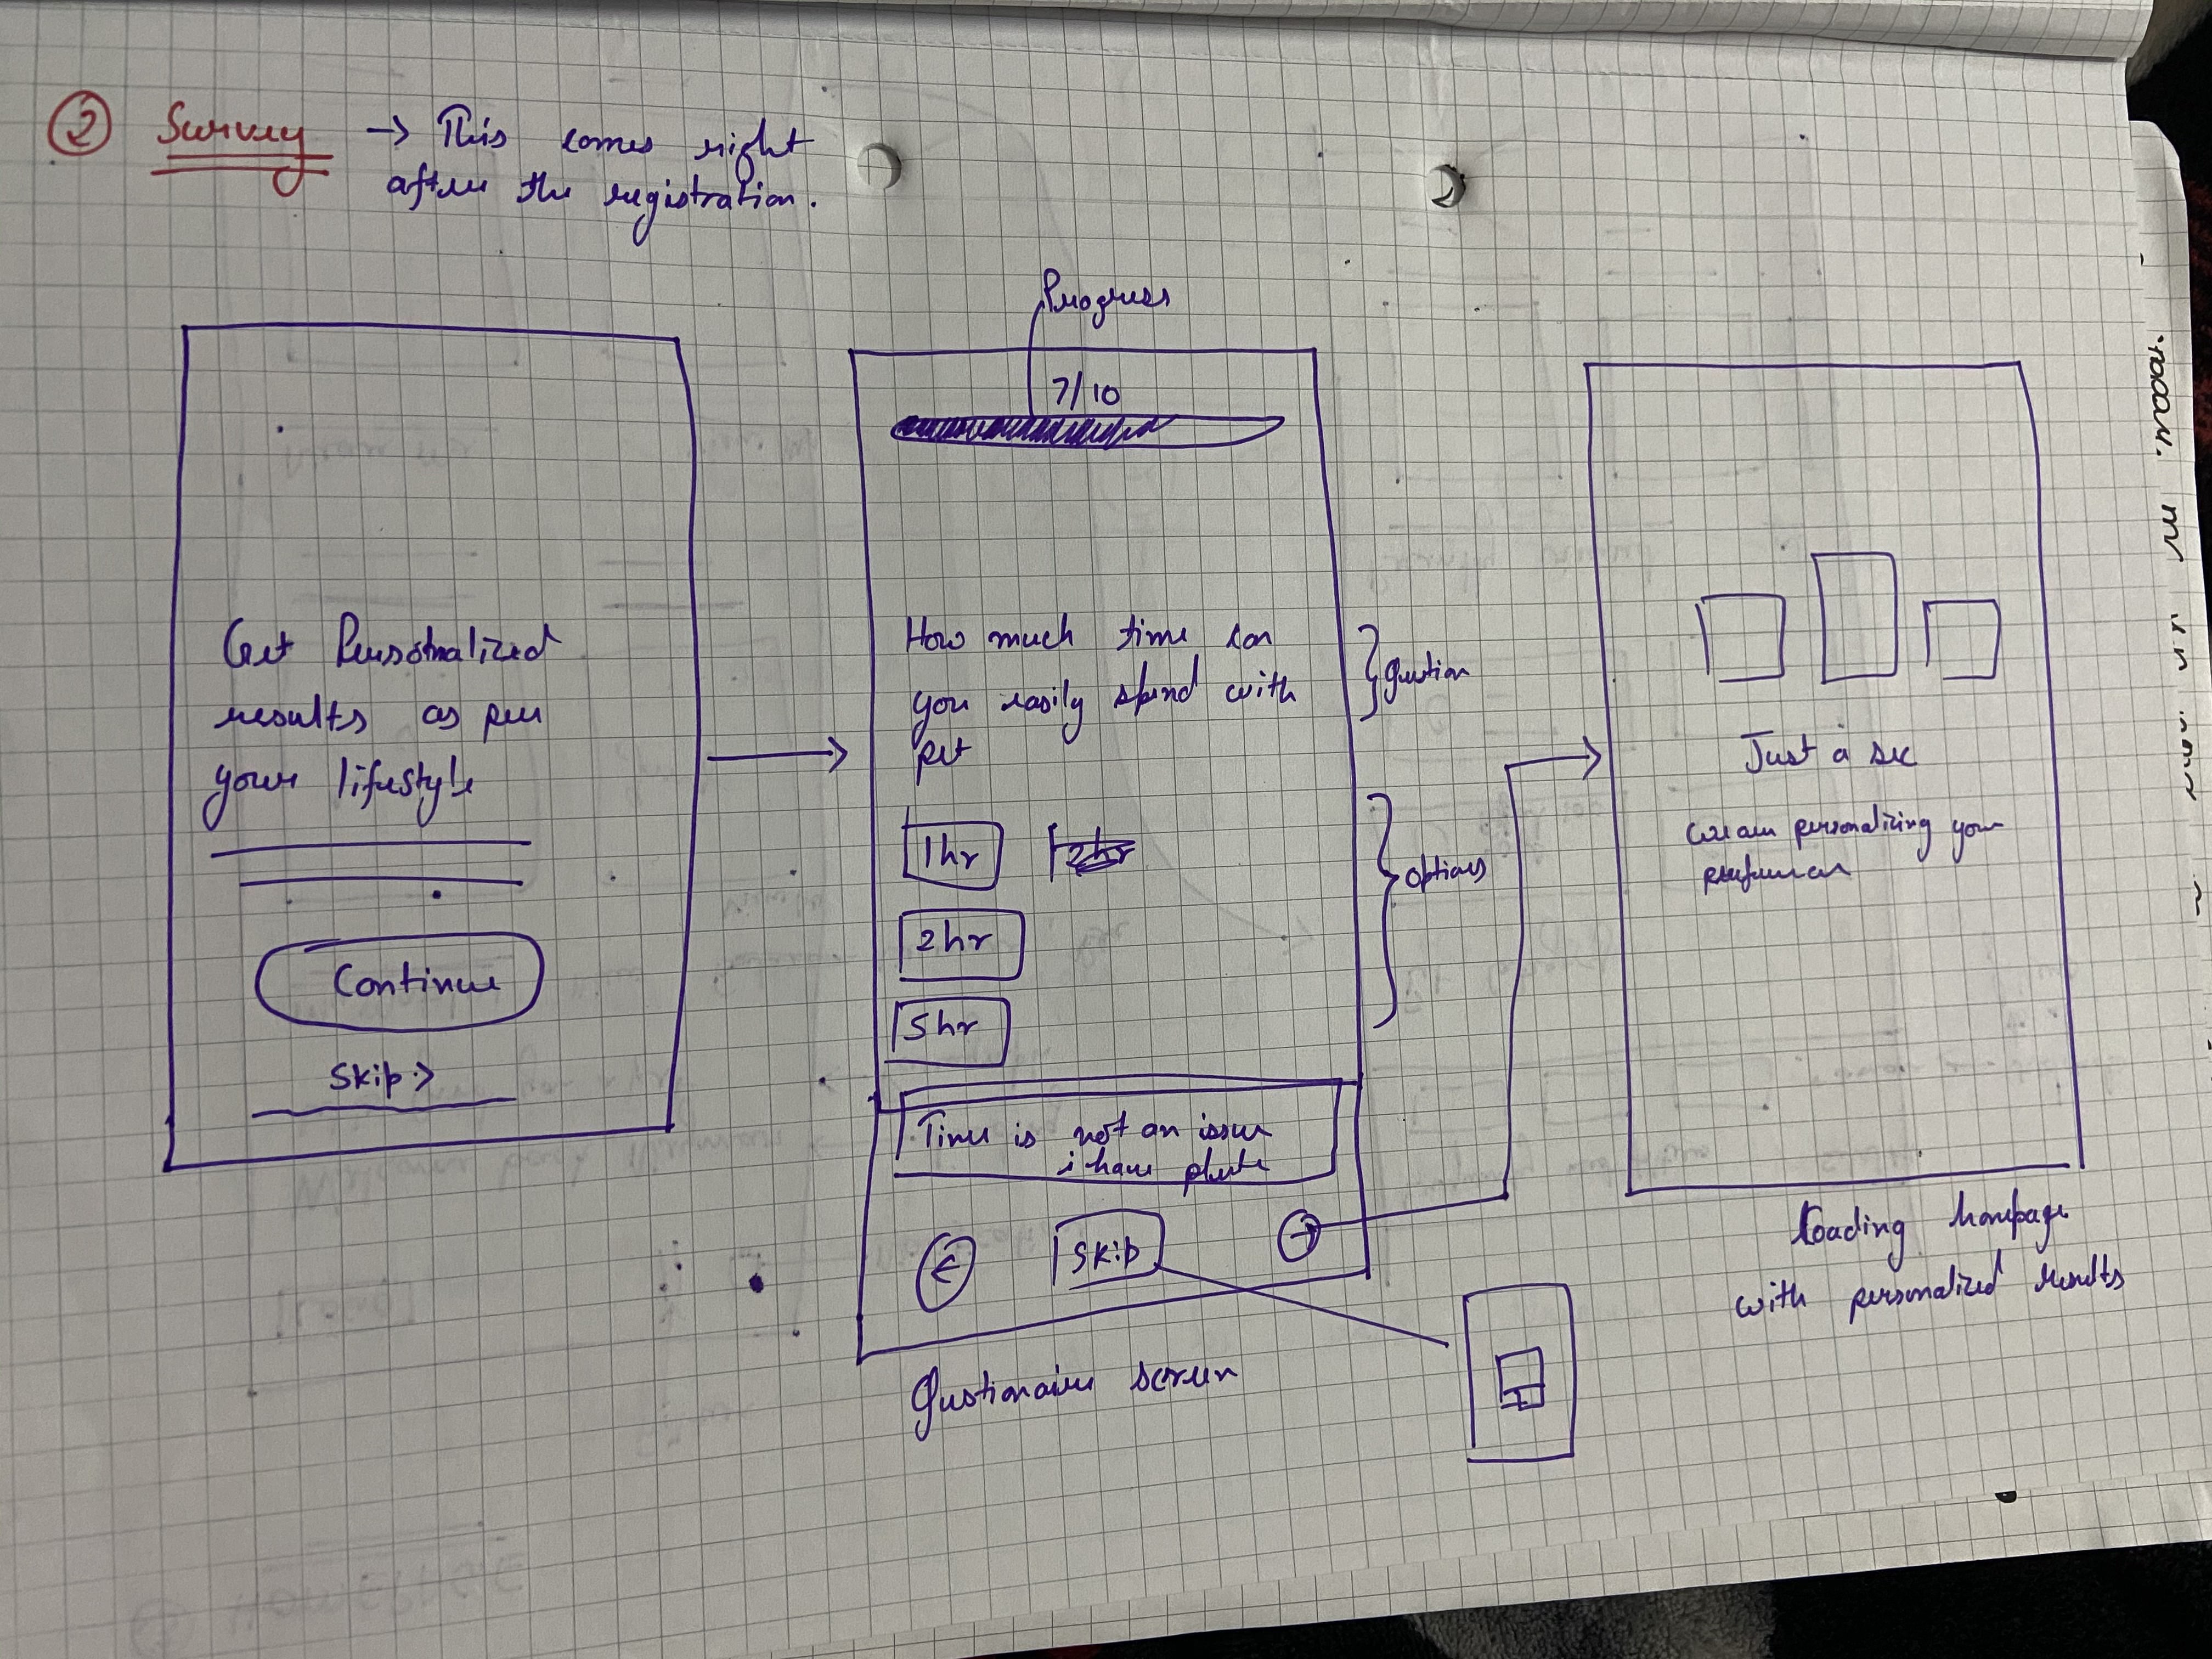 ② Survey → This comes right
after the registration.
Progress
7/10
Get Personalized
results as per
your lifestyle
Continue
Skip >
How much time can
you easily spend with
pet
Question
1hr 2hr
2hr
5hr
options
Time is not an issue
i have
Skip
Questionaire screen
Just a sec
personalizing your
Loading homepage
with personalized results